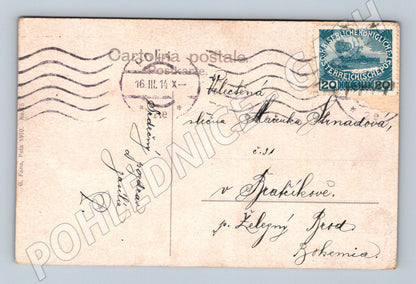 Cartolina postale
Postkarte.
16.III.14 X
K.K. ÖSTERREICHISCHE POST
20 20
Velectěná
slečna Mařenka Strnadová,
č. 31
v Bratčíkově.
p. Železný Brod
Bohemia.
Srdečný
pozdrav
G. Fano, Pola 1910.
POHLEDNICE